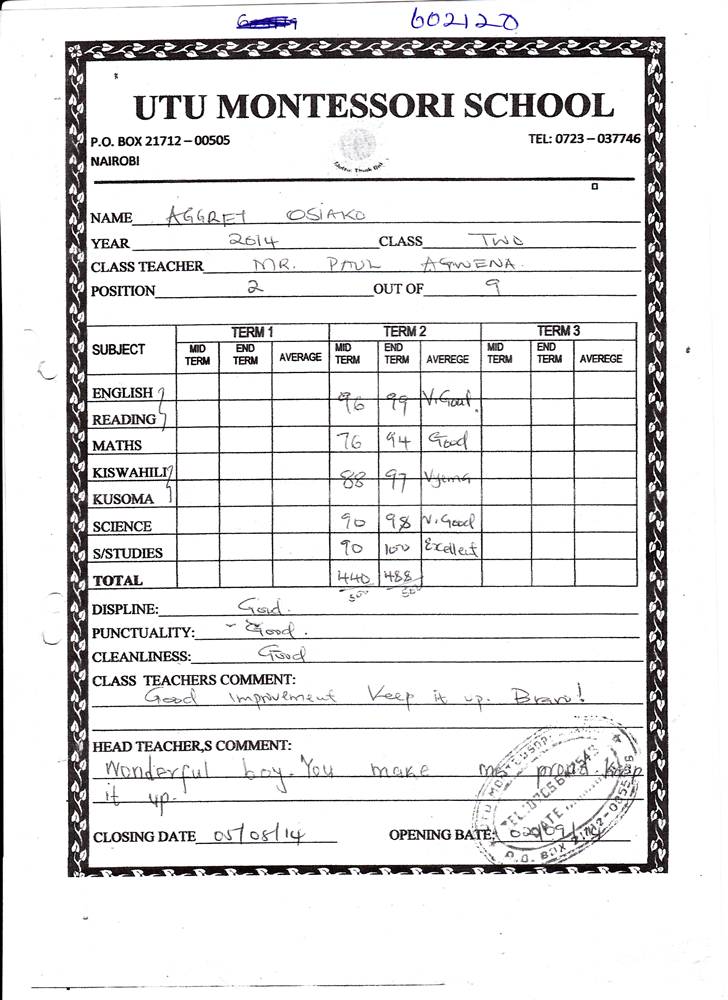 602120
UTU MONTESSORI SCHOOL
P.O. BOX 21712 – 00505 TEL: 0723 – 037746
NAIROBI
NAME AGGREY OSIAKO
YEAR 2014 CLASS TWO
CLASS TEACHER MR. PAUL AGWENA.
POSITION 2 OUT OF 9
SUBJECT TERM 1 TERM 2 TERM 3
MID TERM END TERM AVERAGE MID TERM END TERM AVEREGE MID TERM END TERM AVEREGE
ENGLISH 96 99 V. Good.
READING
MATHS 76 94 Good
KISWAHILI 88 97 Vyema
KUSOMA
SCIENCE 90 98 V. Good
S/STUDIES 90 100 Excellent
TOTAL 440 488
500 500
DISPLINE: Good.
PUNCTUALITY: - Good.
CLEANLINESS: Good
CLASS TEACHERS COMMENT:
Good improvement Keep it up. Bravo!
HEAD TEACHER,S COMMENT:
Wonderful boy. You make me proud. Keep
it up.
CLOSING DATE 05/08/14 OPENING DATE:
P.O. BOX